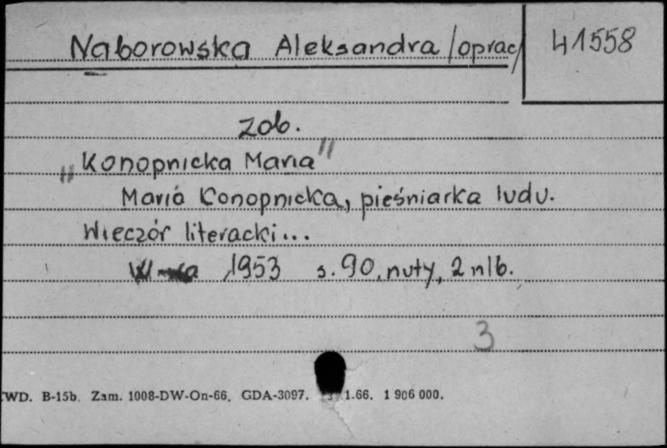 Naborowska Aleksandra /oprac/ 41558
zob.
„Konopnicka Maria"
Maria Konopnicka, pieśniarka ludu.
Wieczór literacki...
W-wa 1953 s. 90, nuty, 2 nlb.
3
WD. B-15b. Zam. 1008-DW-On-66. GDA-3097. 1.66. 1 906 000.